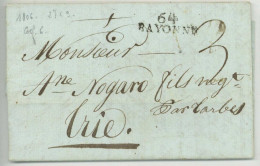 1806
64
BAYONNE
2
Monsieur
Ane Nogaro fils negt
Par tarbes
Trie.